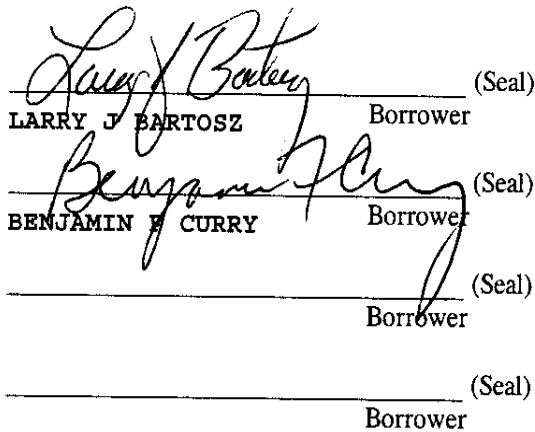 Larry J Bartosz (Seal)
LARRY J BARTOSZ Borrower
Benjamin F Curry (Seal)
BENJAMIN F CURRY Borrower
(Seal)
Borrower
(Seal)
Borrower